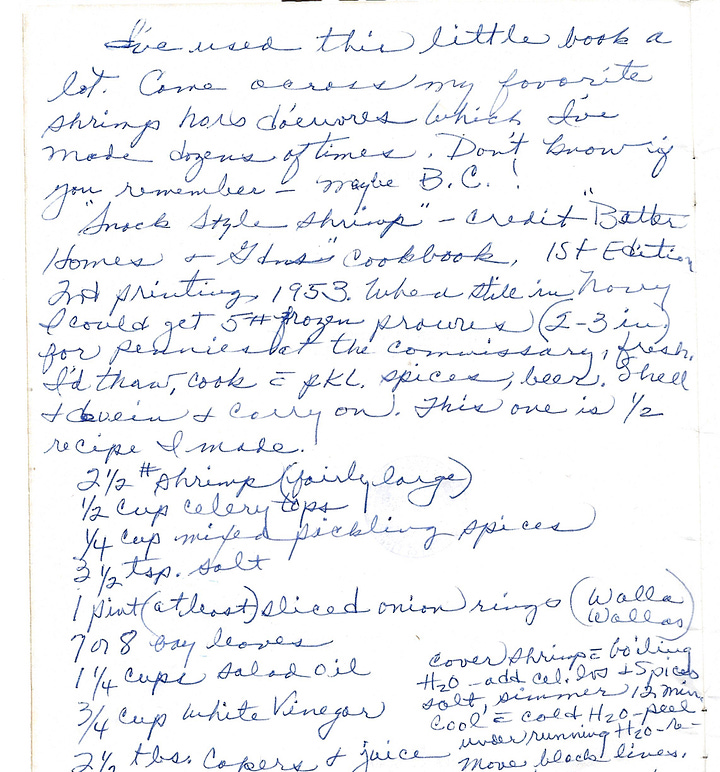 I've used this little book a
lot. Come across my favorite
shrimp hors d'oeuvores which I've
made dozens of times. Don't know if
you remember – maybe B.C.!
"Snack Style Shrimp" – credit "Better
Homes + Gdns" Cookbook, 1st Edition
2nd printing, 1953. When still in Navy
I could get 5# frozen prawns (2-3 in.)
for pennies at the commissary, fresh.
I'd thaw, cook c̄ pkl. spices, beer. Shell
+ devein + carry on. This one is 1/2
recipe I made.
2 1/2 # shrimp (fairly large)
1/2 cup celery tops
1/4 cup mixed pickling spices
3 1/2 tsp. salt
1 pint (at least) sliced onion rings (Walla Wallas)
7 or 8 bay leaves
1 1/4 cups salad oil
3/4 cup white Vinegar
2 1/2 tbs. Capers + juice
cover shrimp c̄ boiling
H2O – add cel. lvs + spices
salt, simmer 12 min.
Cool c̄ cold H2O – peel
under running H2O – re-
move black lines.